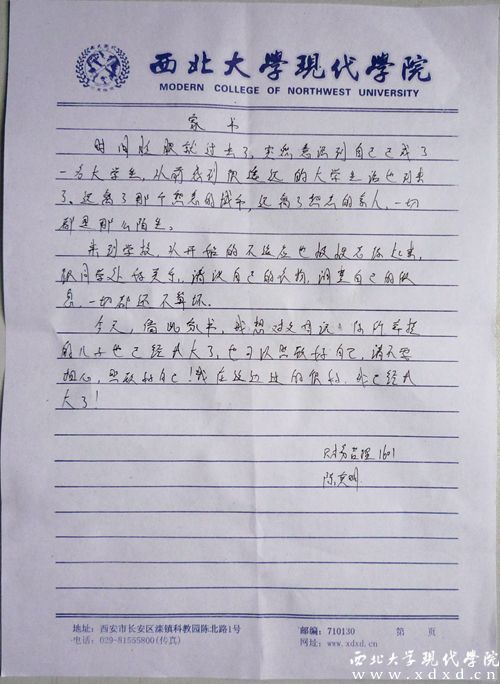 西北大學現代學院
MODERN COLLEGE OF NORTHWEST UNIVERSITY
家书
时间眨眼就过去了,突然意识到自己已成了
一名大学生,从前感到很遥远的大学生活也到来
了,远离了那个想念的城市,远离了想念的家人,一切
都是那么陌生。
来到学校,从开始的不适应也慢慢好起来,
跟同学处好关系,清洗自己的衣物,调整自己的
息,一切都还不算坏。
今天,借此家书,我想对父母说:你所养
的儿子也已经长大了,也可以照顾好自己,请不要
担心,照顾好自己!我在这边过的很好,我已经长
大了!
财务管理1601
陈
地址:西安市长安区滦镇科教园陈北路1号
邮编:710130
第 页
电话:029-81555800(传真)
网址:www.xdxd.cn
西北大学现代学院
www.xdxd.cn